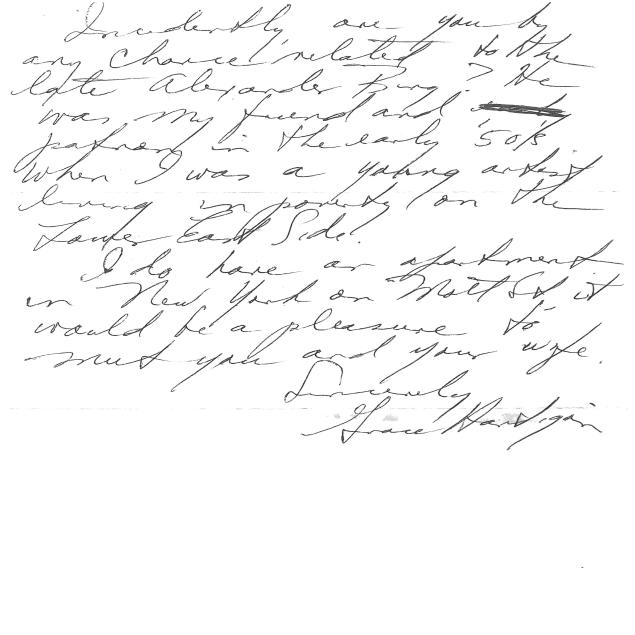 Incidently, are you by
any chance related to the
late Alexander Bing? He
was my friend and
patron in the early '50's
when I was a young artist
living in poverty on the
Lower East Side.
I do have an apartment
in New York on Mott St, it
would be a pleasure to
meet you and your wife.
Sincerely
Grace Hartigan